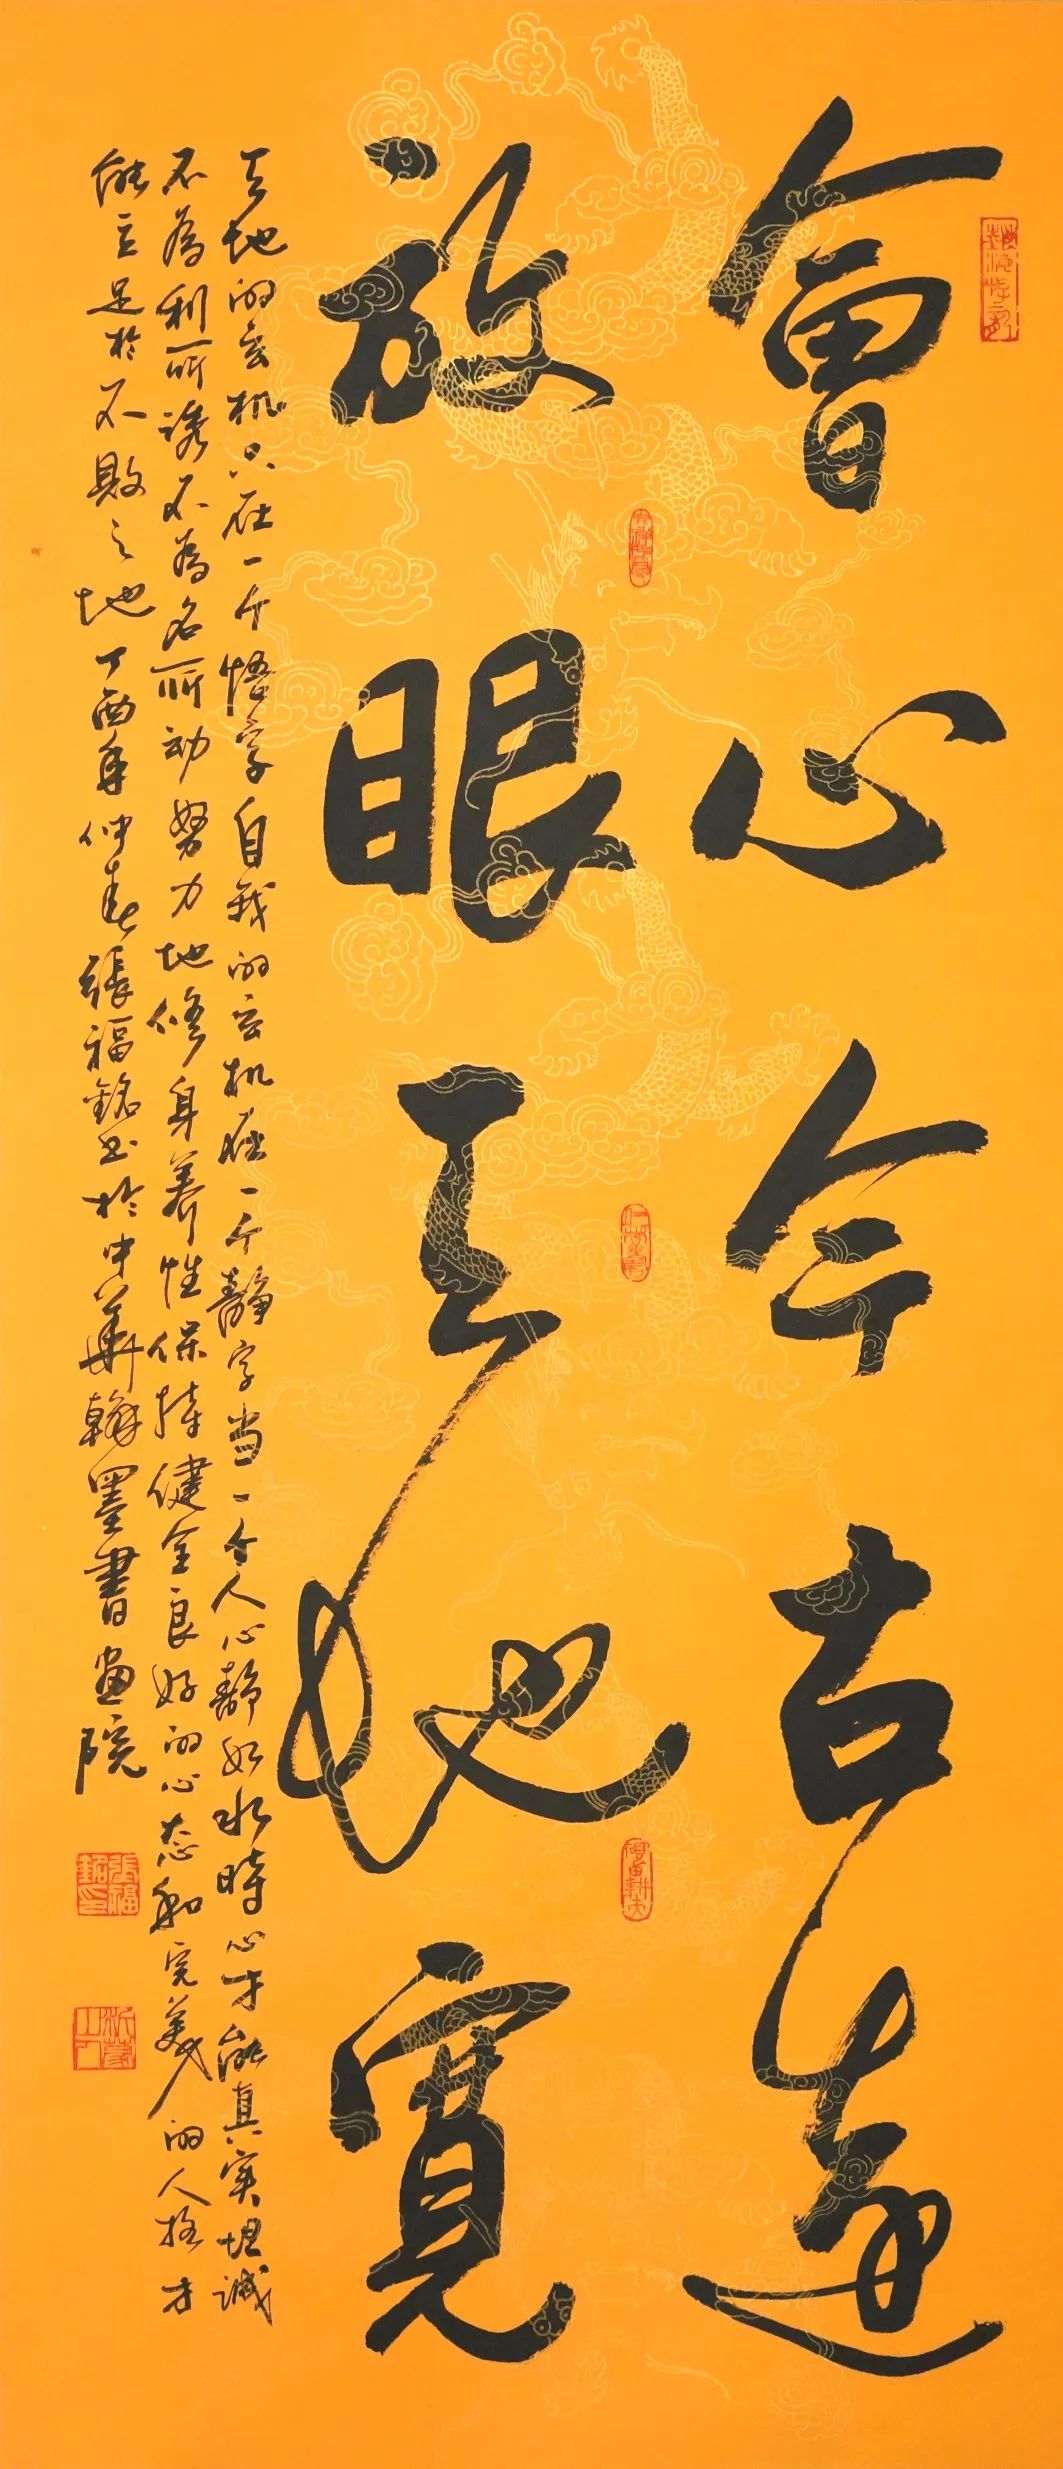 會心今古遠
放眼天地寬
天地的玄机只在一个悟字自我的玄机在一个静字当一个人心静如水時心才能真实坦誠
不為利所诱不為名所动努力地修身养性保持健全良好的心态和完美的人格才
能立足於不败之地丁酉年仲春張福銘书於中華翰墨書画院
張福銘印
沂蒙山人